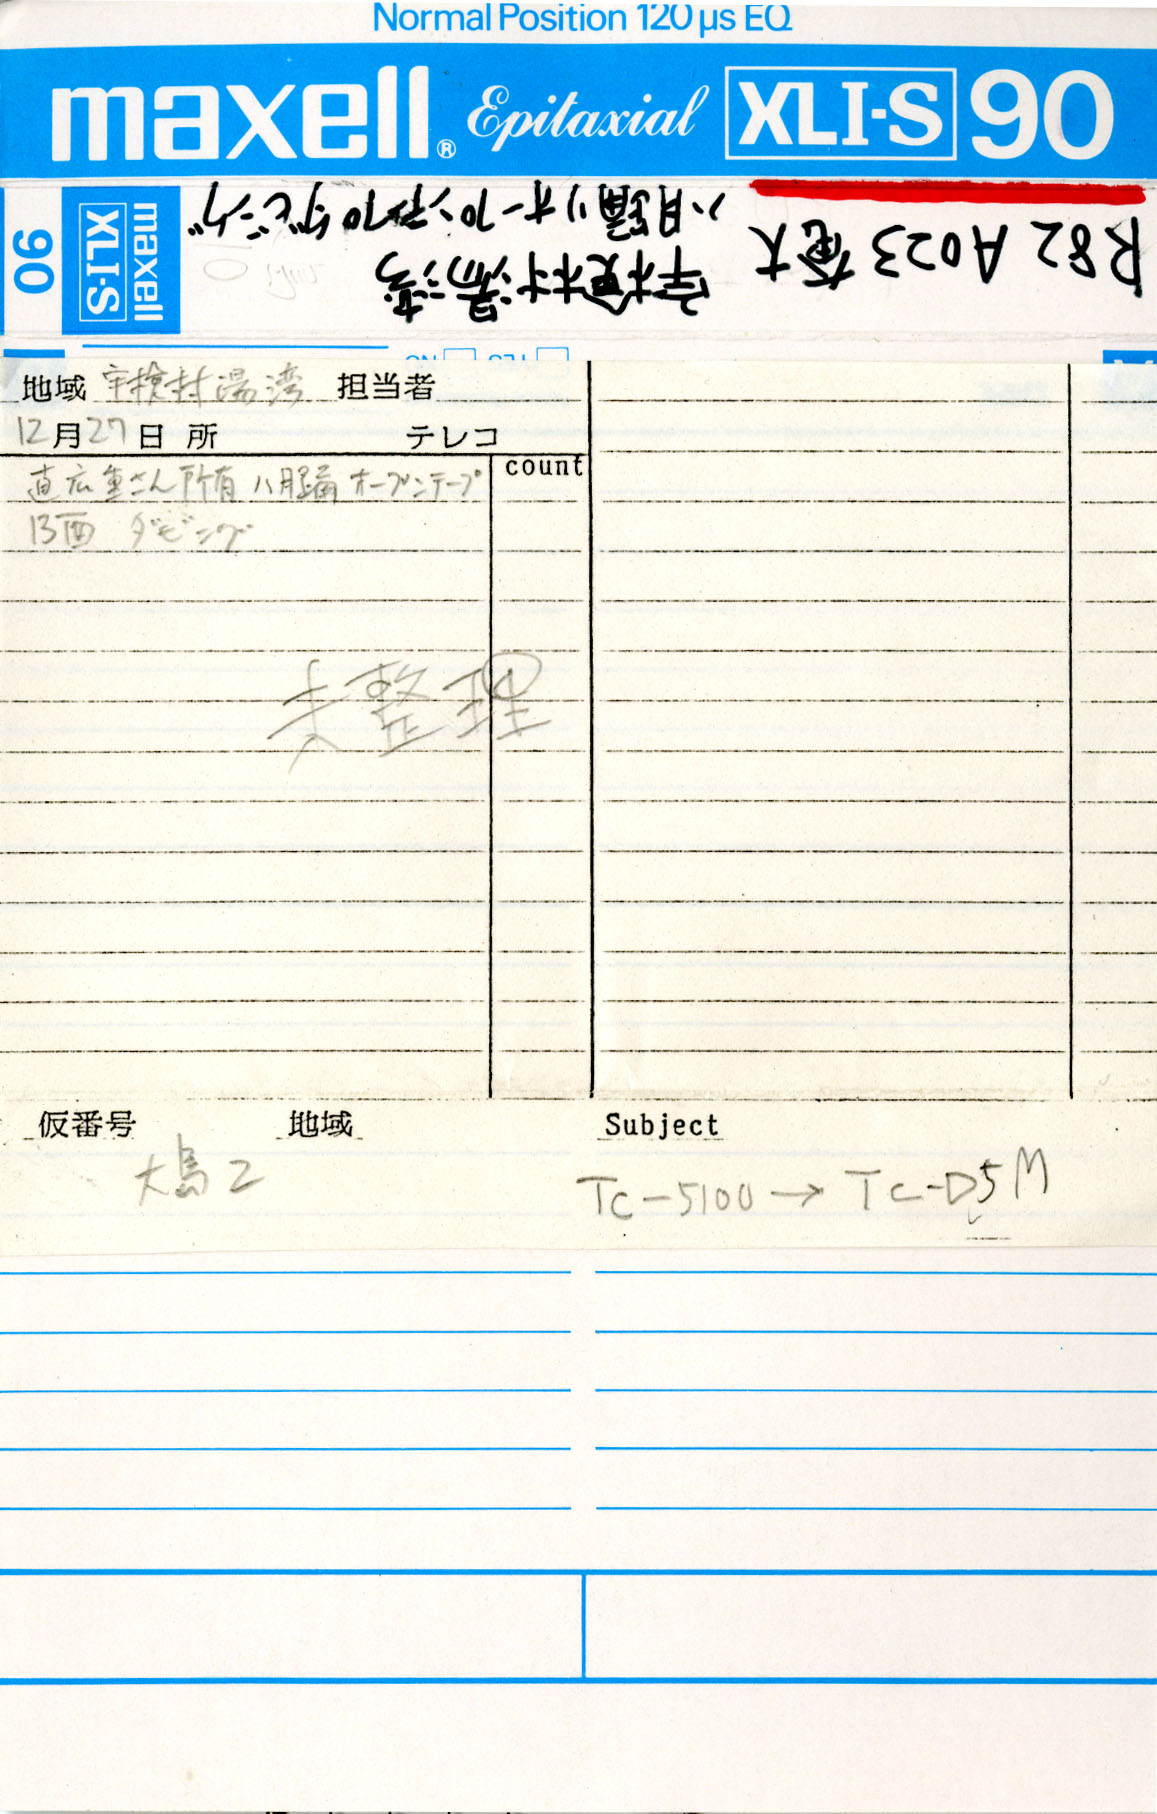 Normal Position 120 µs EQ
maxell® Epitaxial XLI-S 90
90 XLI-S maxell
R82 A023 奄大
宇検村湯湾
八月踊りオープンテープダビング
地域 宇検村湯湾 担当者
12月27日 所 テレコ
count
直広重さん所有 八月踊 オープンテープ
B面 ダビング
未整理
仮番号 地域 Subject
大島2
TC-5100→TC-D5M